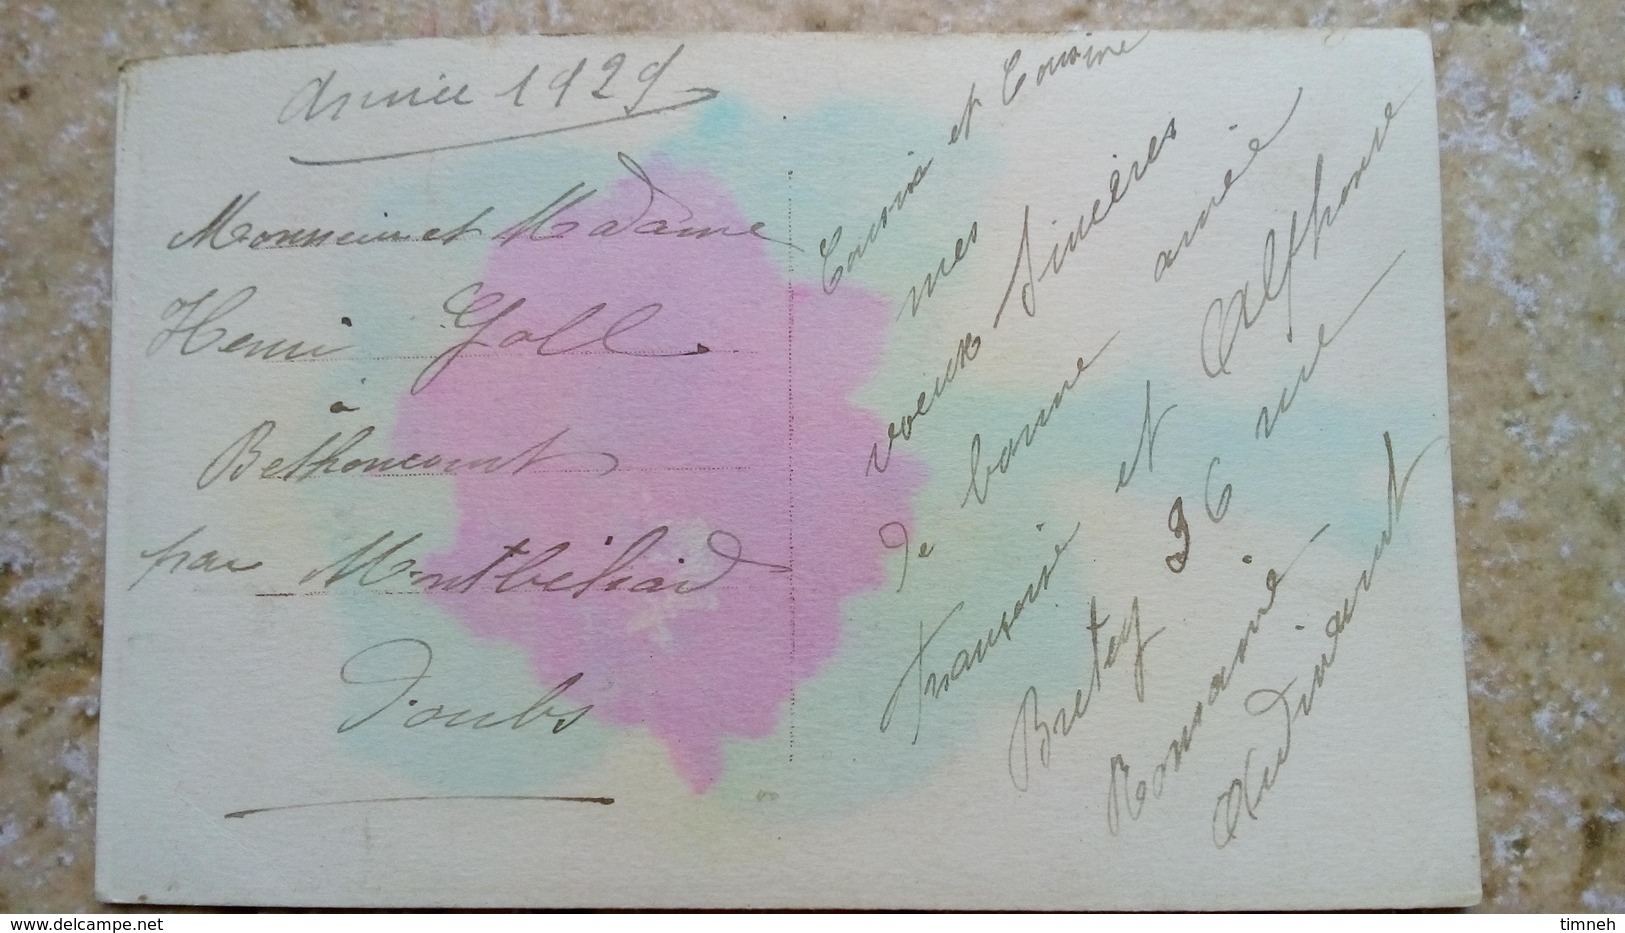 Année 1929
Monsieur et Madame
Henri Goll
à
Bethoncourt
par Montbéliard
Doubs
Cousin et Cousine
mes
voeux sincères
de bonne année
françoise et Alphonse
Bretey 36 rue
Audincourt
delcampe.net
timneh